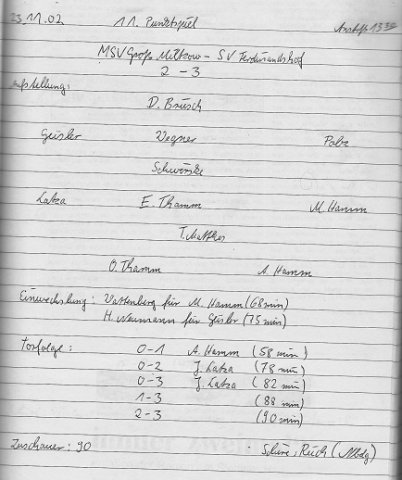 23.11.02 11. Punktspiel Anstoß 13 30
MSV Groß Miltzow - SV Ferdinandshof
2 - 3
Aufstellung:
D. Brüsch
Geisler Wagner Pabz
Schwinske
Latza E. Thamm M. Hamm
T. Matthes
O. Thamm A. Hamm
Einwechslung: Vattenberg für M. Hamm (68 min)
H. Naumann für Geisler (75 min)
Torfolge:
0-1 A. Hamm (58 min)
0-2 J. Latza (78 min)
0-3 J. Latza (82 min)
1-3 (88 min)
2-3 (90 min)
Zuschauer: 90 Schiri: Rüch (Nbdg)